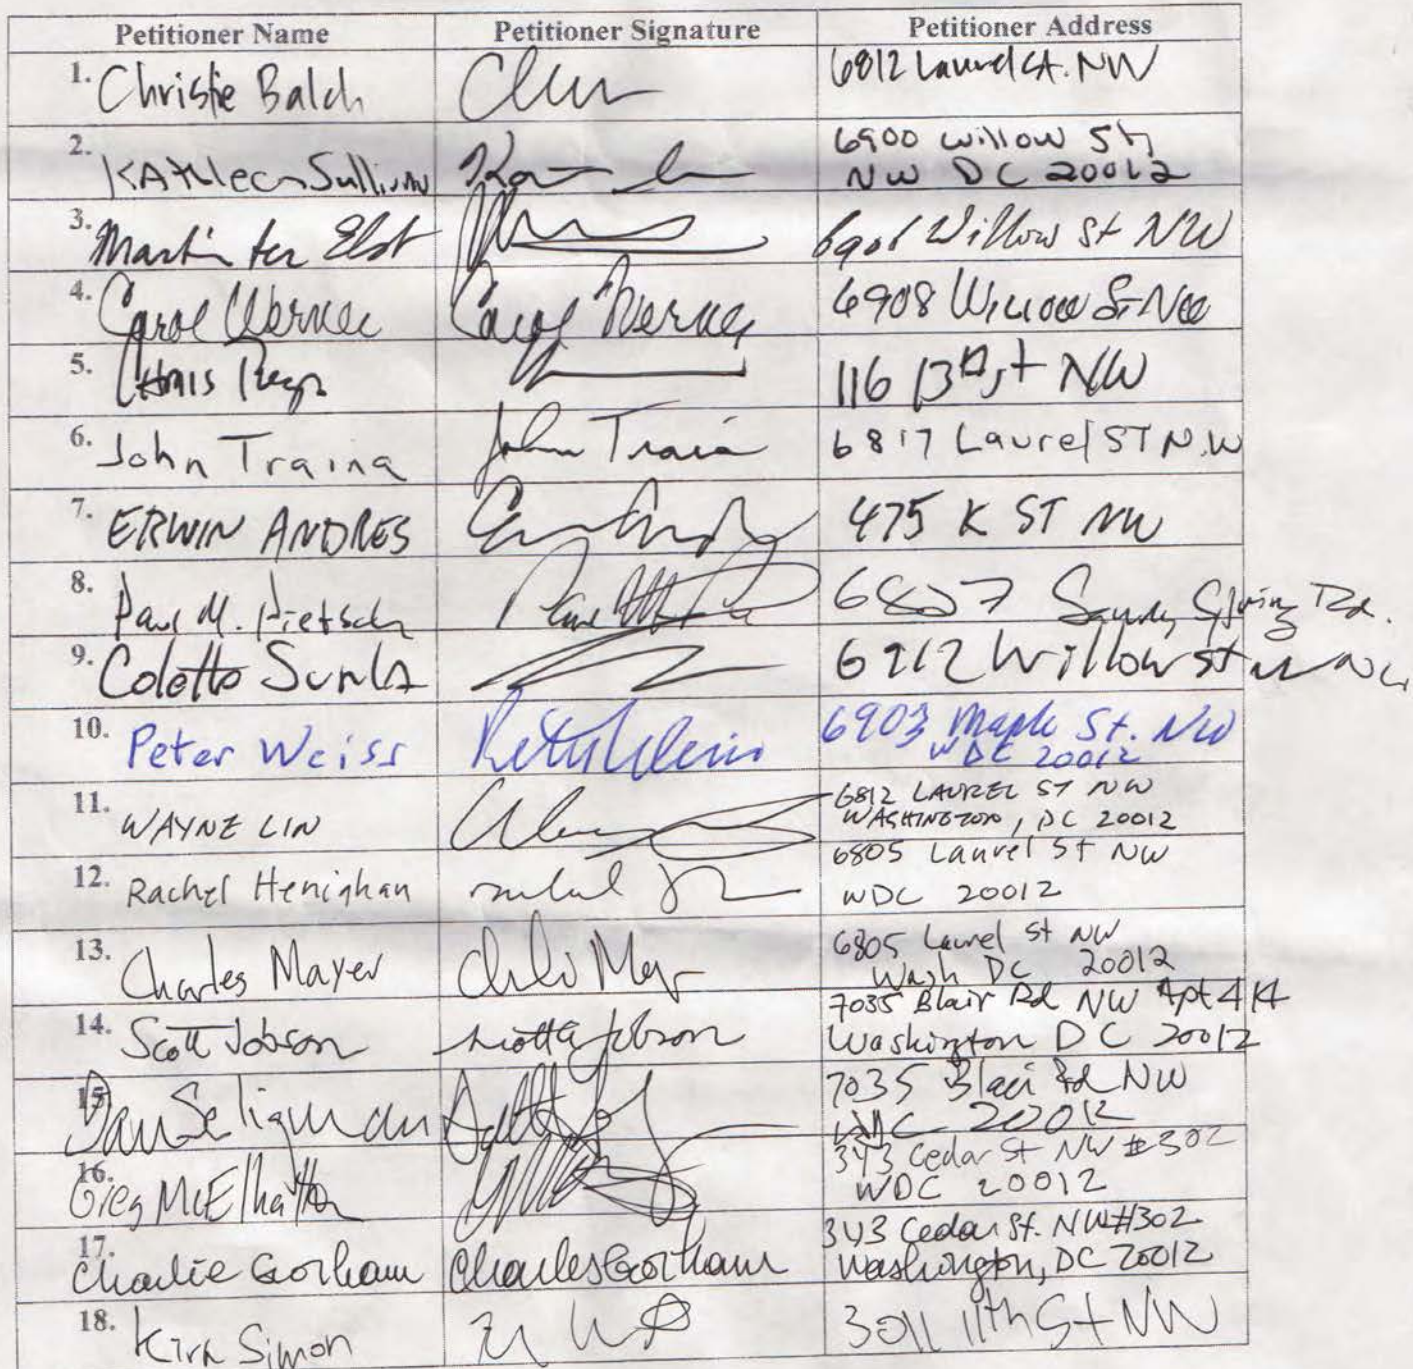 Petitioner Name Petitioner Signature Petitioner Address
1. Christie Balch 6812 Laurel St. NW
2. Kathleen Sullivan 6900 Willow St,
NW DC 20012
3. Martin ter Elst Willow St NW
4. Carol Werner Carol Werner 6908 Willow St NW
5. Chris 116 St NW
6. John Traina John Traina 6817 Laurel ST N.W
7. ERWIN ANDRES 475 K ST NW
8. Paul M. Pietsch Sandy Spring Rd.
9. Colette 6912 Willow St NW
10. Peter Weiss Peter Weiss 6903 Maple St. NW
WDC 20012
11. WAYNE LIN 6812 LAUREL ST NW
WASHINGTON, DC 20012
12. Rachel Henighan 6805 Laurel St NW
WDC 20012
13. Charles Mayer 6805 Laurel St NW
Wash DC 20012
14. Scott Jobson Scott Jobson 7035 Blair Rd NW Apt 414
Washington DC 20012
15. Dan Seligman 7035 Blair Rd NW
20012
16. Greg McElhatton 343 Cedar St NW #302
WDC 20012
17. Charlie Gorham Charles Gorham 343 Cedar St. NW #302
Washington, DC 20012
18. Kirk Simon 3011 11th St NW